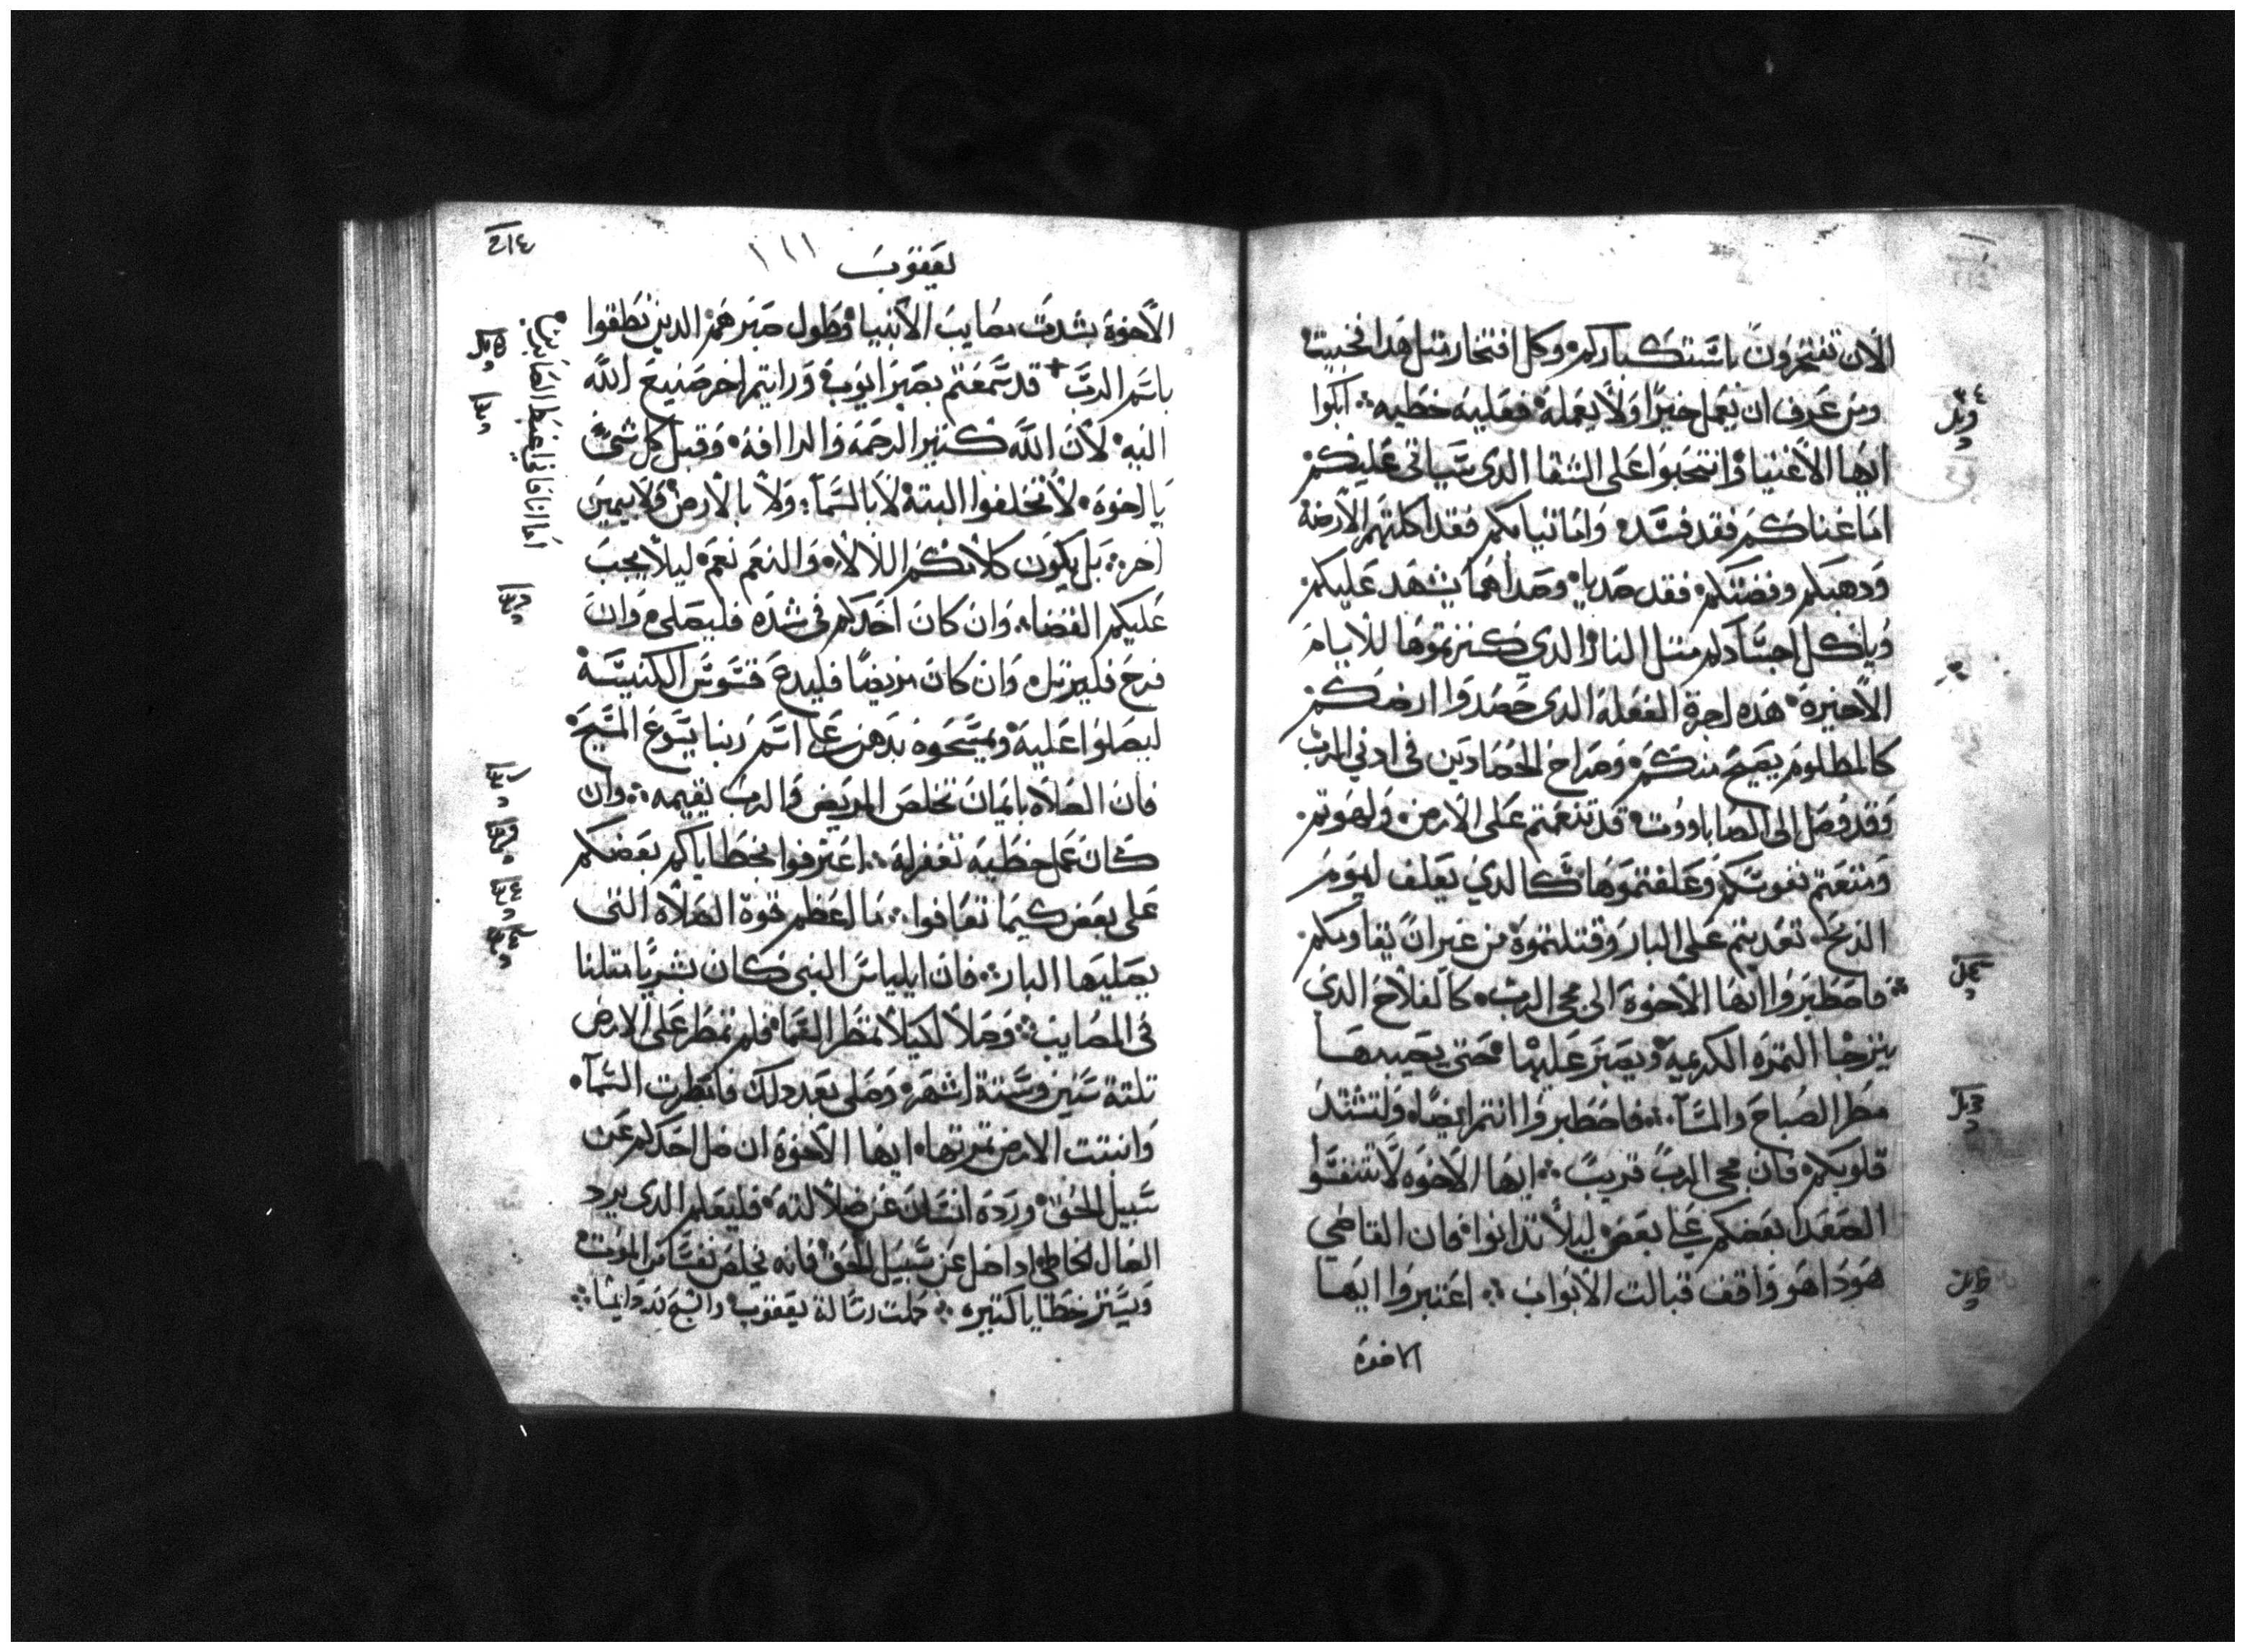 الان تفتخرون باستكباركم وكل افتخار متل هدا فخبيت
ومن عرف ان يعمل خيرًا ولا يعمله فعليه خطيه ابكوا
ايها الاغنيا وانتحبوا على الشقا الدى سياتى عليكم
اما غناكم فقد فسد واما تيابكم فقد اكلتهم الارضة
ودهبكم وفضتكم فقد صديا وصداهما يشهد عليكم
وياكل اجسادكم متل النار الدي كنزتموها للايام
الاخيرة هده اجرة الفعلة الدى حصدوا ارضكم
كالمظلوم يصيح منكم وصراخ الحصادين فى ادني الرب
وقد وصل الى الصاباووت قد تنعمتم على الارض ولهوتم
ومتعتم نفوسكم وعلفتموها كالدي يعلف ليوم
الدبح تعديتم على البار وقتلتموة من غير ان يقاومكم
فاصطبروا ايها الاخوة الى مجى الرب كالفلاح الدى
يترجا التمره الكريمة ويصبر عليها حتى يصيبها
مطر الصباح والمسا فاصطبروا انتم ايضا ولتشتد
قلوبكم فان مجى الرب قريب ايها الاخوه لا تتنفسوا
الصعدا بعضكم على بعض ليلا تدانوا فان القاضي
هودا هو واقف قبالت الابواب اعتبروا ايها
الاخوة
٢١٤
يعقوب ١١١
الاخوة بشدت مصايب الانبيا وطول صبرهم الدين نطقوا
باسم الرب + قد سمعتم بصبر ايوب ورايتم اخر صنيع الله
اليه لان الله كتير الرحمه والراافه وقبل كل شى
يا اخوه لا تحلفوا البتة لا بالسما ولا بالارض ولا بيمين
اخر بل يكون كلامكم اللا لا والنعم نعم ليلا يجب
عليكم القضا وان كان احدكم فى شده فليصلى وان
فرح فليرتل وان كان مريضا فليدع قسوس الكنيسة
ليصلوا عليه ويمسحوه بدهن على اسم ربنا يسوع المسيح
فان الصلاه بايمان تخلص المريض والرب يقيمه وان
كان عمل خطيه تغفر له اعترفوا بخطاياكم بعضكم
على بعض كيما تعافوا ما اعظم قوة الصلاه التى
يصليها البار فان ايلياس النبى كان بشريا متلنا
فى المصايب وصلا لكيلا تمطر السما فلم تمطر على الارض
تلتة سنين وستة اشهر وصلى بعد دلك فامطرت السما
وانبتت الارض تمرتها ايها الاخوة ان ضل احدكم عن
سبيل الحق ورده انسان عن ضلالته فليعلم الدى يرد
الضال الخاطى ادا ضل عن سبيل الحق فانه يخلص نفسا من الموت
ويستر خطايا كتيره كملت رسالة يعقوب والسبح لله دايما
اما انا فاني اغبط الصابرين